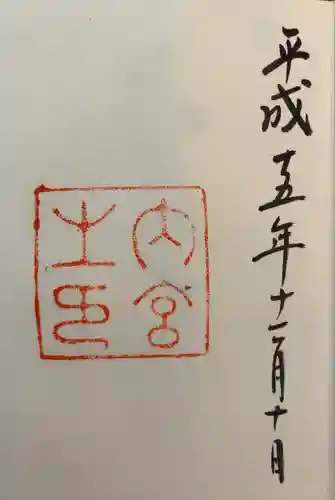 平成十五年十一月十日
内宮
之印